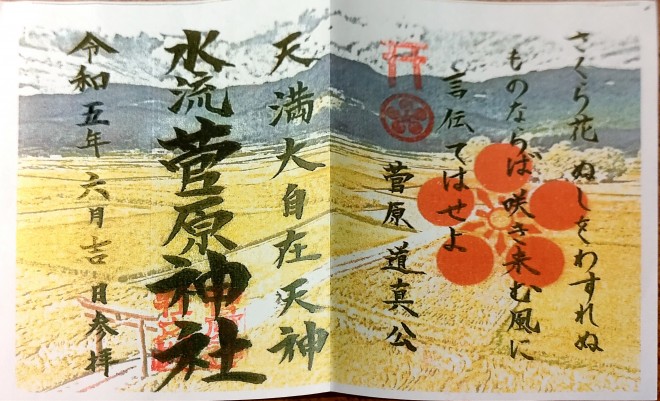 さくら花 ぬしをわすれぬ
ものならば 咲き来む風に
言伝てはせよ
菅原道真公
天満大自在天神
水流菅原神社
令和五年六月吉日参拝